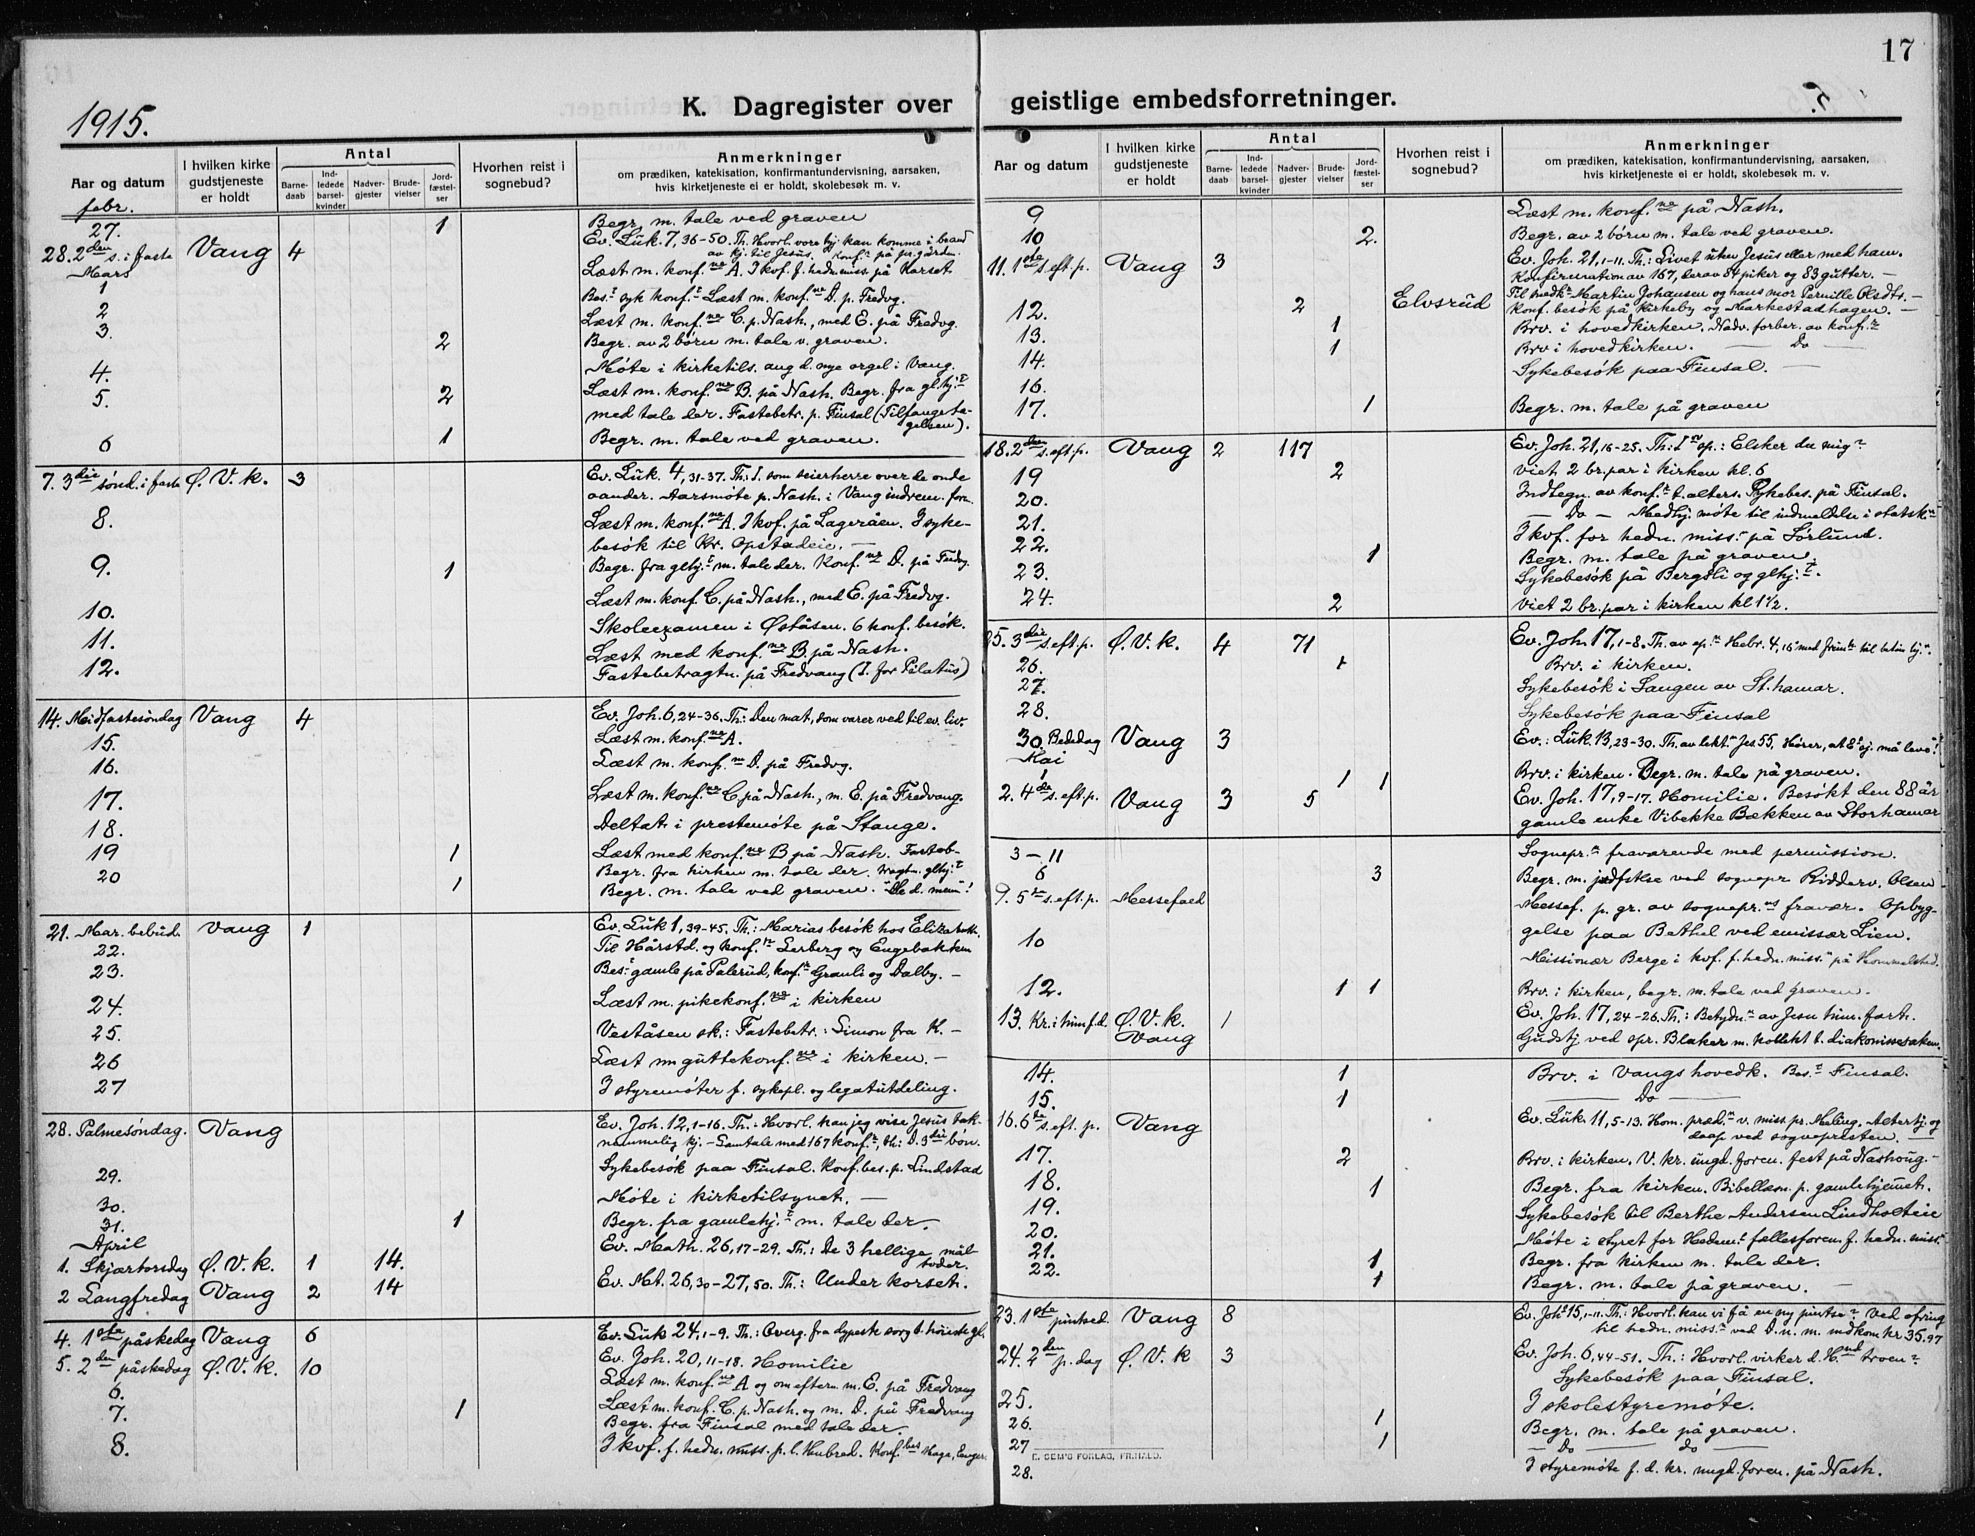 17
1915.
K. Dagregister over geistlige embedsforretninger.
Aar og datum
I hvilken kirke gudstjeneste er holdt
Antal
Barne-daab
Ind-ledede barsel-kvinder
Nadver-gjester
Brude-vielser
Jord-fæstel-ser
Hvorhen reist i sognebud?
Anmerkninger
om prædiken, katekisation, konfirmantundervisning, aarsaken,
hvis kirketjeneste ei er holdt, skolebesøk m. v.
febr.
27. 1 Begr. m. tale ved graven
28. 2den s. i faste Vang 4 Ev. Luk. 7, 36-50. Th. Hvorl. vore hj. kan komme i brand
av kj. til Jesus. Konfr på pr.gården.
Mars
1 Læst m. konf.ne A. I kvf. f. hedn. miss. på Korset
2 Bes.t syk konf.t Læst m. konf.ne D. p. Fredvg.
3. Læst m. konf.ne C. p. Nash., med E. på Fredvg.
2 Begr. av 2 børn m. tale v. graven.
4. Møte i kirketils. ang d. nye orgel i Vang.
5. 2 Læst m. konf.ne B. på Nash. Begr. fra gl.hj.t
med tale der. Fastebetr. p. Finsal (Tilfangeta-
gelsen).
6 1 Begr. m. tale ved graven.
7. 3die sønd. i faste Ø. V. k. 3 Ev. Luk. 4, 31-37. Th: J. som seierherre over de onde
aander. Aarsmøte p. Nash. i Vang indrem. for.
8. Læst m. konf.ne A. I kvf. på Lageråen. 3 syke-
besøk til Kr. Opstadeie. —
9. 1 Begr. fra glhj.t m. tale der. Konf.ne D. på Fredvg.
10. Læst m. konf. C. på Nash., med E. på Fredvg.
11. Skoleexamen i Øståsen. 6 konf. besøk.
12. Læst med konf.ne B. på Nash.
Fastebetragtn. på Fredvang (J. for Pilatus)
14. Midfastesøndag Vang 4 Ev. Joh. 6, 24-36. Th: Den mat, som varer ved til ev. liv.
15. Læst m. konf.ne A.
16. Læst m. konf.ne D. på Fredvg.
17. Læst m. konf.ne C på Nash., m. E. på Fredvang.
18. Deltat i prestemøte på Stange.
19 1 Læst med konf.ne B på Nash. Fasteb-
20 1 Begr. fra kirken m. tale der.
Begr. m. tale ved graven.
21. Mar. bebud. Vang 1 Ev. Luk 1, 39-45. Th: Marias besøk hos Elizabeth.
22. Til Hårstd. og konf. Lerberg og Engebakken
23. Bes. gamle på Palerud, konf. Granli og Dalby. —
24. Læst m. pikekonf.ne i kirken
25. Veståsen sk: Fastebetr.: Simon fra K. —
26 Læst m guttekonf.ne i kirken. —
27 I styremøter f. sykepl. og legatutdeling.
28. Palmesøndag. Vang Ev. Joh. 12, 1-16. Th: Hvorl. kan jeg vise Jesus tak-
nemmelig hj. — Samtale med 167 konf.r, th: D. 3die bøn.
29. Sykebesøk paa Finsal. Konf. bes. p. Lindstad
30. Møte i kirketilsynet. —
31. 1 Begr. fra gamlehj.t m. tale der.
April
1. Skjærtorsdag Ø. V. k. 1 14. Ev. Math. 26, 17-29. Th: De 3 hellige mål-
tider.
2 Langfredag Vang 2 14 Ev. Mt. 26, 30-27, 50. Th: Under korset.
4. 1ste påskedag Vang 6 Ev. Luk 24, 1-9. Th: Overg. fra dypeste sorg t. høieste gl.
5. 2den påskedag Ø. V. k. 10 Ev. Joh. 20, 11-18. Homilie
6. Læst m. konf.ne A og om efterm. m. E. på Fredvang
7. 1 Læst m. konf. C. p. Nash. og m. D. på Fredvang
Begr. fra Finsal med tale der.
8. I kvf. f. hedn. miss. p. l. Hubred. Konf. bes Haga, Enger.
9 Læst m. konf.ne på Nash.
10. 2. Begr. av 2 børn m. tale ved graven.
11. 1ste s. eft. p. Vang 3 Ev. Joh. 21, 1-11. Th: Livet uten Jesus eller med ham.
Konfirmation av 167, derav 84 piker og 83 gutter. —
12. 2 Elvsrud Til nedk. Martin Johansen og hans mor Pernille Olsdtr. —
Konf. besøk på Kirkeby og Markestadhagen. —
13. 1 Brv. i hovedkirken. Nadv. forber. av konf.r
14. 1 Brv i hovedkirken. — Do —
16. Sykebesøk paa Finsal. —
17. 1 Begr. m. tale på graven
18. 2den s. eft. p. Vang 2 117 Ev. Joh. 21, 16-25. Th: Elsker du mig?
19 2 Viet 2 br.par i kirken kl. 6
20. Indtegn. av konf.r t. alters. Sykebes. på Finsal.
21. — Do — Medhj. møte til indmeldelse i statsk.
22. I kvf. for hedn. miss. på Sørlund.
23. 1 Begr. m. tale på graven.
Sykebesøk på Bergsli og glhj.t.
24. 2 Viet 2 br.par i kirken kl 1 1/2.
25. 3die s. eft. p. Ø. V. k. 4 71 Ev. Joh. 17, 1-8. Th. av ep. Hebr. 4, 16
26. 1 Brv. i kirken.
27. Sykebesøk i Sangen av St.hamar.
28. Sykebesøk paa Finsal
30. Bededag Vang 3 Ev.: Luk. 13, 23-30. Th. av lekt. Jes 55. Hører, at Eders sj. må leve!
Mai
1 1 1 Brv. i kirken. Begr. m. tale på graven.
2. 4de s. eft. p. Vang 3 5 Ev. Joh. 17, 9-17. Homilie. Besøkt den 88 år
gamle enke Vibekke Bækken av Storhamar
3 - 11 Sognepr.n fraværende med permission.
6 3 Begr. m. jordfstkse ved sognepr Ridderv. Olsen
9. 5te s. eft. p. Messefald Messef. p. gr. av sognepr.ns fravær. Opbyg-
gelse paa Bethel ved emissær Lien.
10 Missionær Berge i kvf. f. hedn. miss. på Hommelstad.
12. 1 1 Brv. i kirken, begr. m. tale ved graven.
13. Kr. i him.f.d. Ø. V. k. 1 Ev. Joh. 17, 24-26. Th: Betydn.n av Jesu him. fart.
Vang Gudstj ved spr. Blaker m. kollekt t. diakonissesaken.
14. 1 Brv. i Vangs hovedk. Bes.t Finsal.
15. 1 — Do —
16. 6te s. eft. p. Vang Ev. Luk. 11, 5-13. Hom. præd.n v. miss. pr. Meling. Altertj. og
daap ved sognepresten. —
17. 2 Brv. i kirken. V. kr. ungd. foren. fest på Nashoug. —
18. 1 Begr. fra kirken. Bibellesn. p. gamlehjemmet.
19. Sykebesøk til Berthe Andersen Lindholteie
20. Møte i styret for Hedem. fællesforen. f. hedn. miss.
21. 1 Begr. fra kirken m. tale der.
22. 1 Begr. m. tale på graven. —
23. 1ste pintsed. Vang 8 Ev. Joh 15, 1-11. Th: Hvorl. kan vi få en ny pintse? Ved ofring
til hedn. miss.n ved D. n. m. indkom kr 35.97
24. 2den p. dag Ø. V. k 3 Ev. Joh. 6, 44-51. Th: Hvorl. virker d. H.nd troen?
Sykebesøk paa Finsal.
25. I skolestyremøte.
26. 1 Begr. m. tale på graven.
27 1 — Do — do —
28. I styremøte f. d. kr. ungd. foren. på Nash.
E. SEM'S FORLAG, FR.HALD.